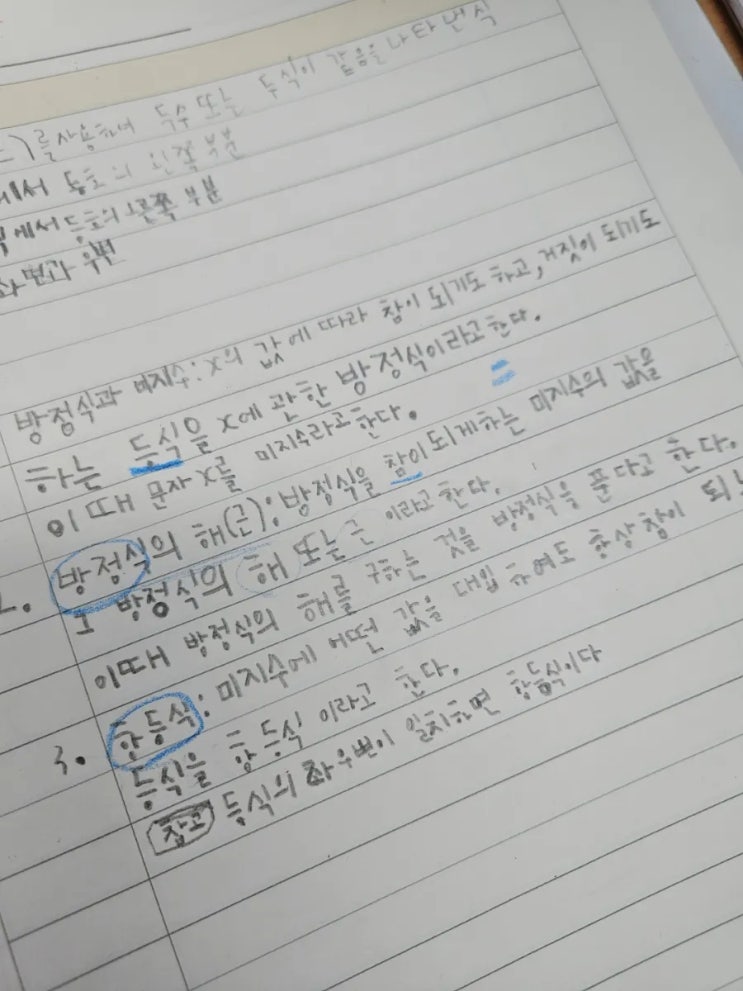 를 사용하여 두 수 또는 두 식이 같음을 나타낸 식
에서 등호의 왼쪽 부분
에서 등호의 오른쪽 부분
좌변과 우변
방정식과 미지수: x의 값에 따라 참이 되기도 하고, 거짓이 되기도
하는 등식을 x에 관한 방정식이라고 한다.
이때 문자 x를 미지수라고 한다. =
2. 방정식의 해(근): 방정식을 참이 되게하는 미지수의 값을
그 방정식의 해 또는 근 이라고 한다.
이때 방정식의 해를 구하는 것을 방정식을 푼다고 한다.
3. 항등식: 미지수에 어떤 값을 대입 하여도 항상 참이 되는
등식을 항등식 이라고 한다.
참고 등식의 좌우변이 일치하면 항등식이다